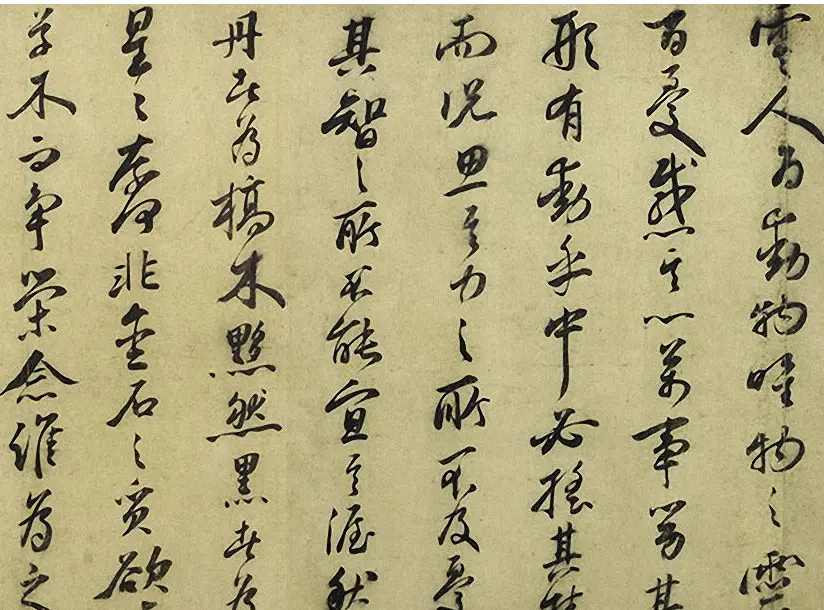 零人為動物唯物之靈
百憂感其心萬事勞其
形有動乎中必搖其精
而況思其力之所不及憂
其智之所不能宜其渥然
丹者為槁木黟然黑者為
星〻奈何非金石之質欲
草木而爭榮念誰為之